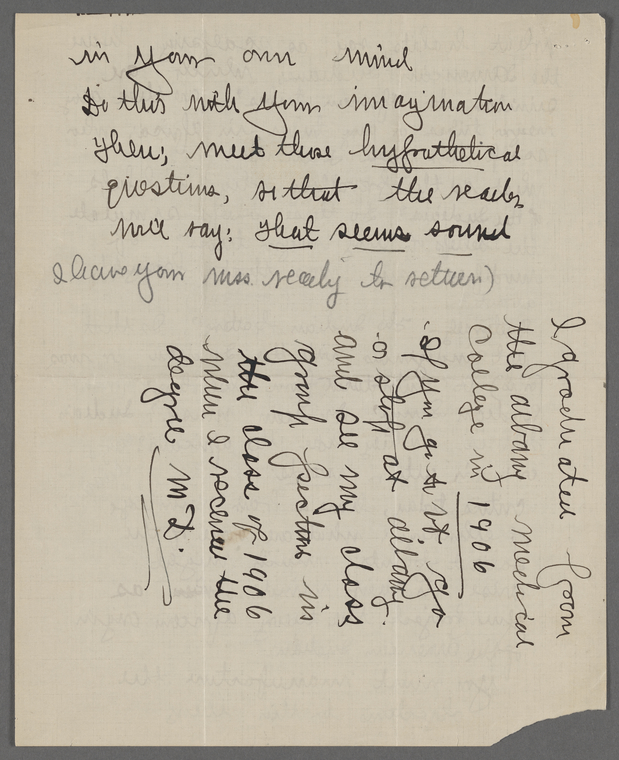 in your own mind
Do this with your imagination
then; meet those hypothetical
questions, so that the reader
will say: that seems sound
I have your mss. ready to return)
I graduated from
the albany medical
College in 1906
if you go to
or stop at albany.
and see my class
group picture in
the class of 1906
when I received the
degree M D.